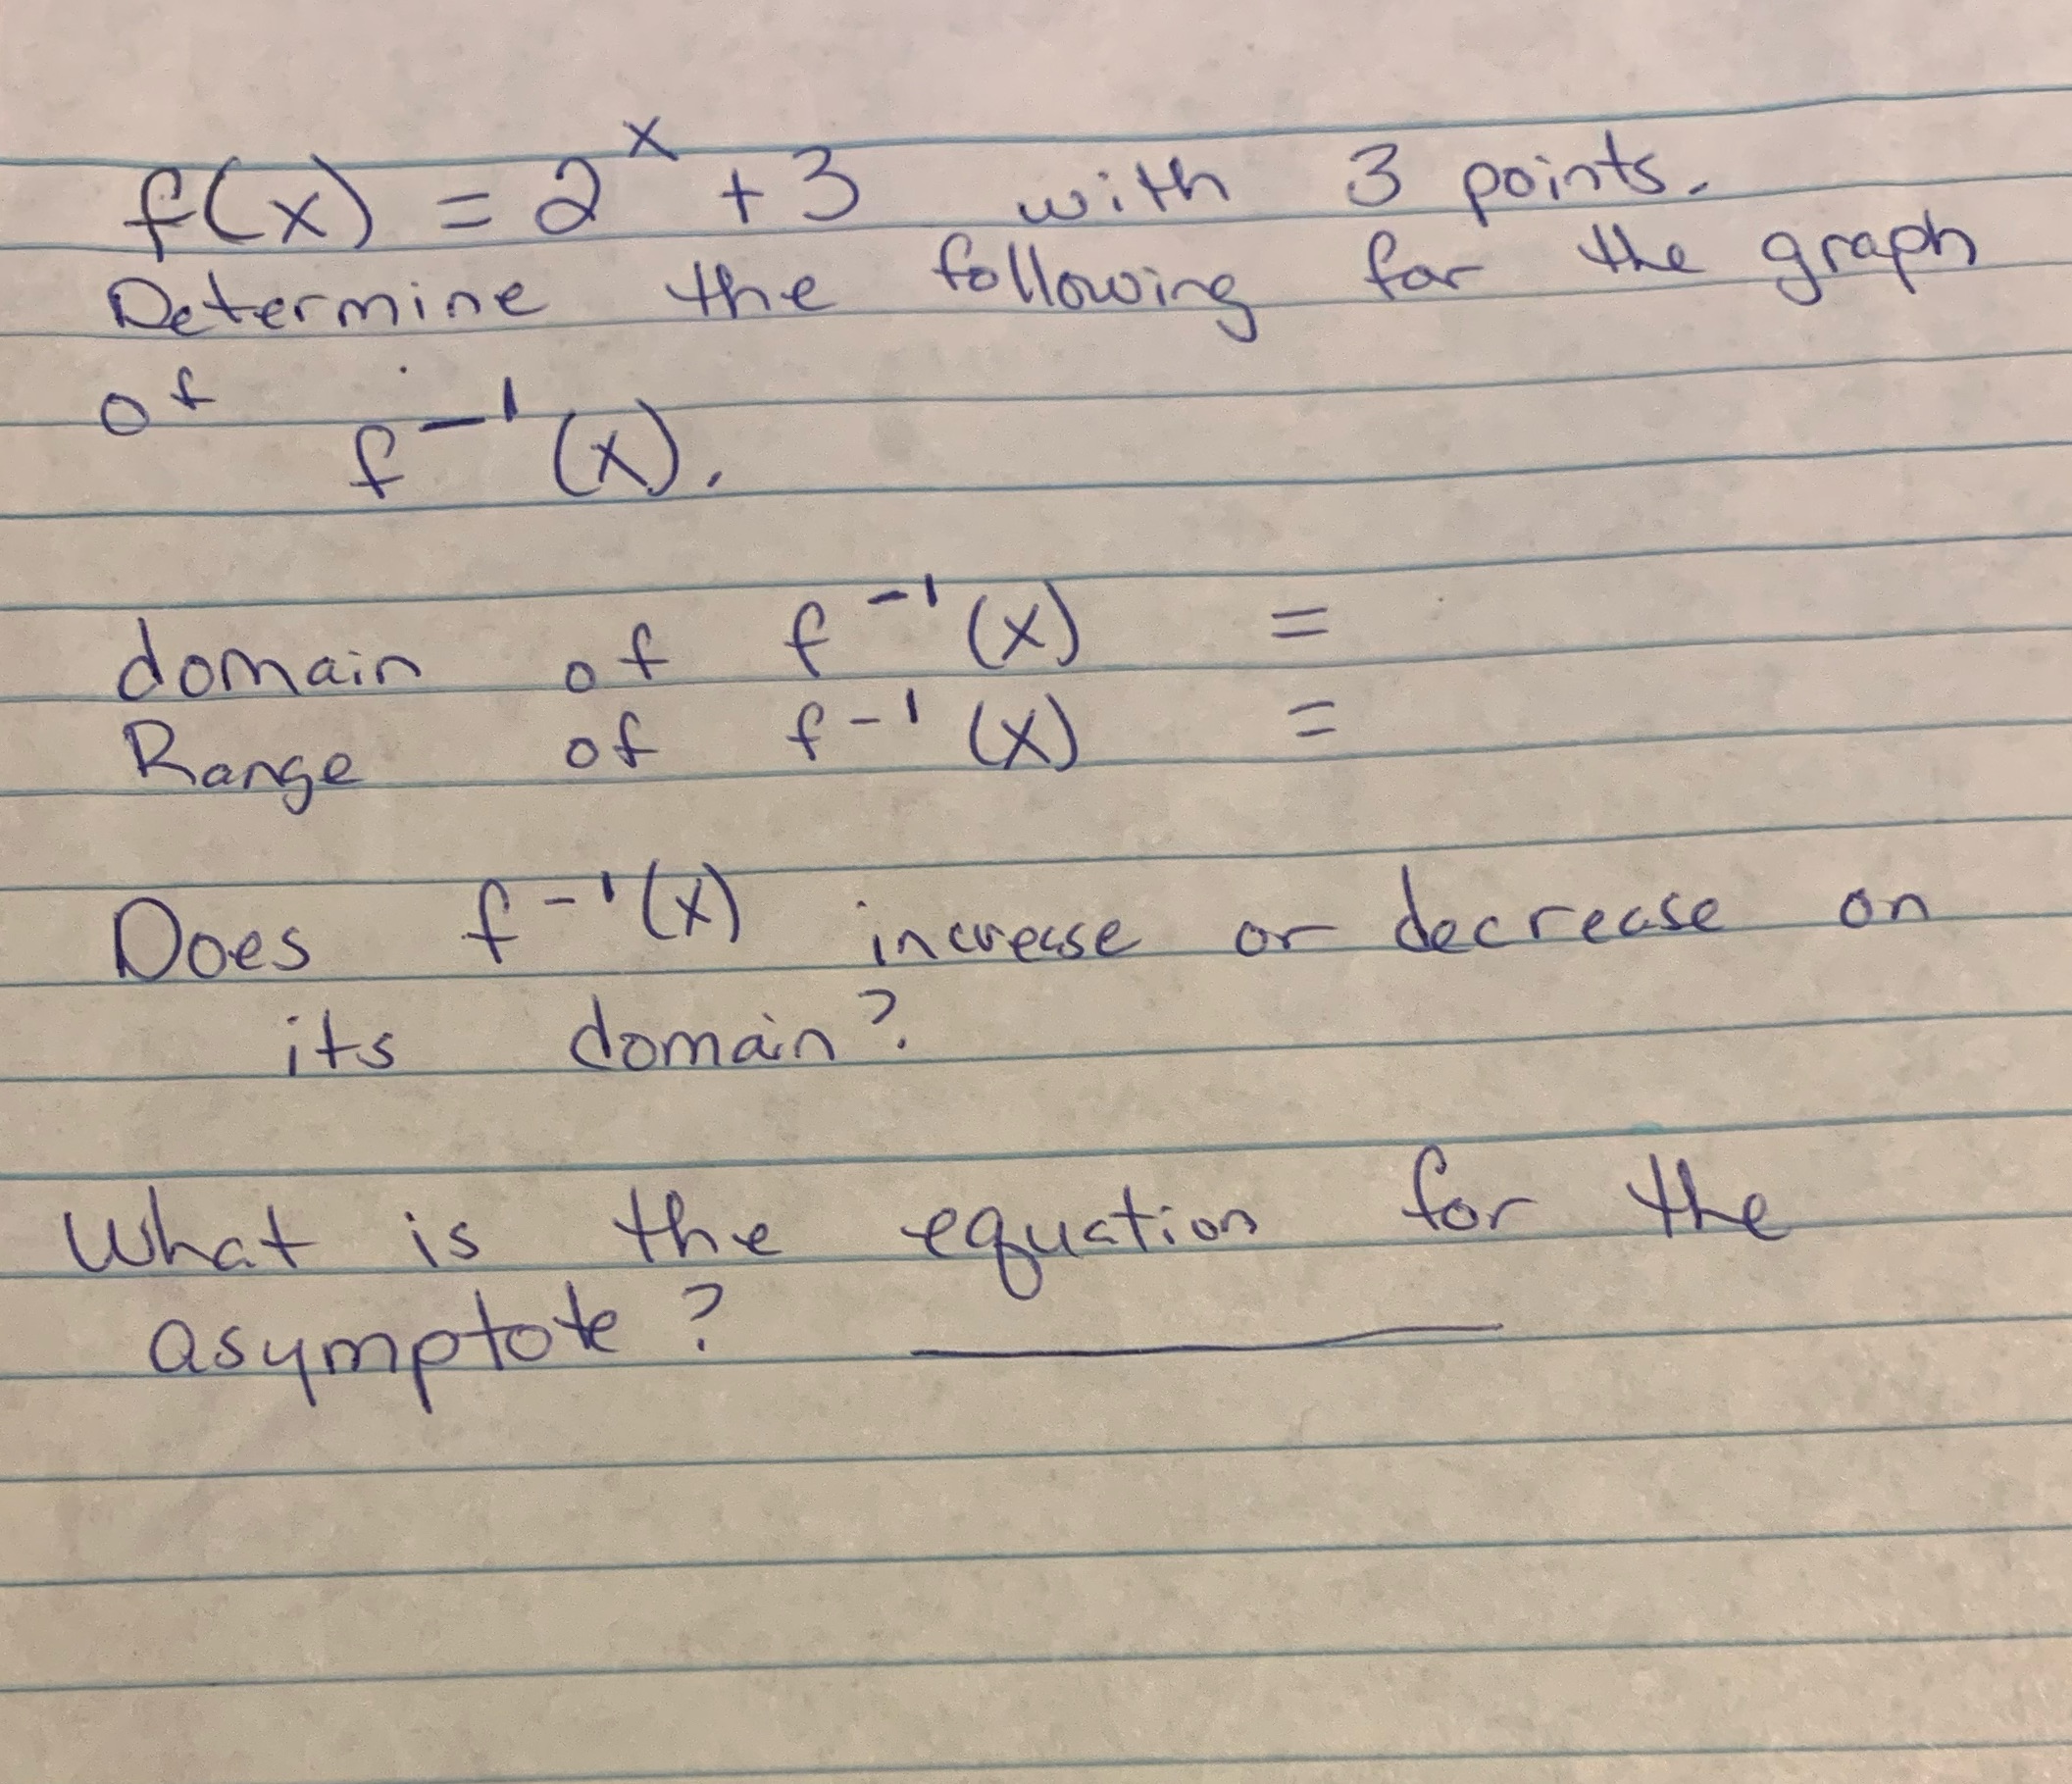 f(x) = 2^x + 3 with 3 points.
Determine the following for the graph
of f^-1(x).
domain of f^-1(x) =
Range of f^-1(x) =
Does f^-1(x) increase or decrease on
its domain?
What is the equation for the
asymptote? ________